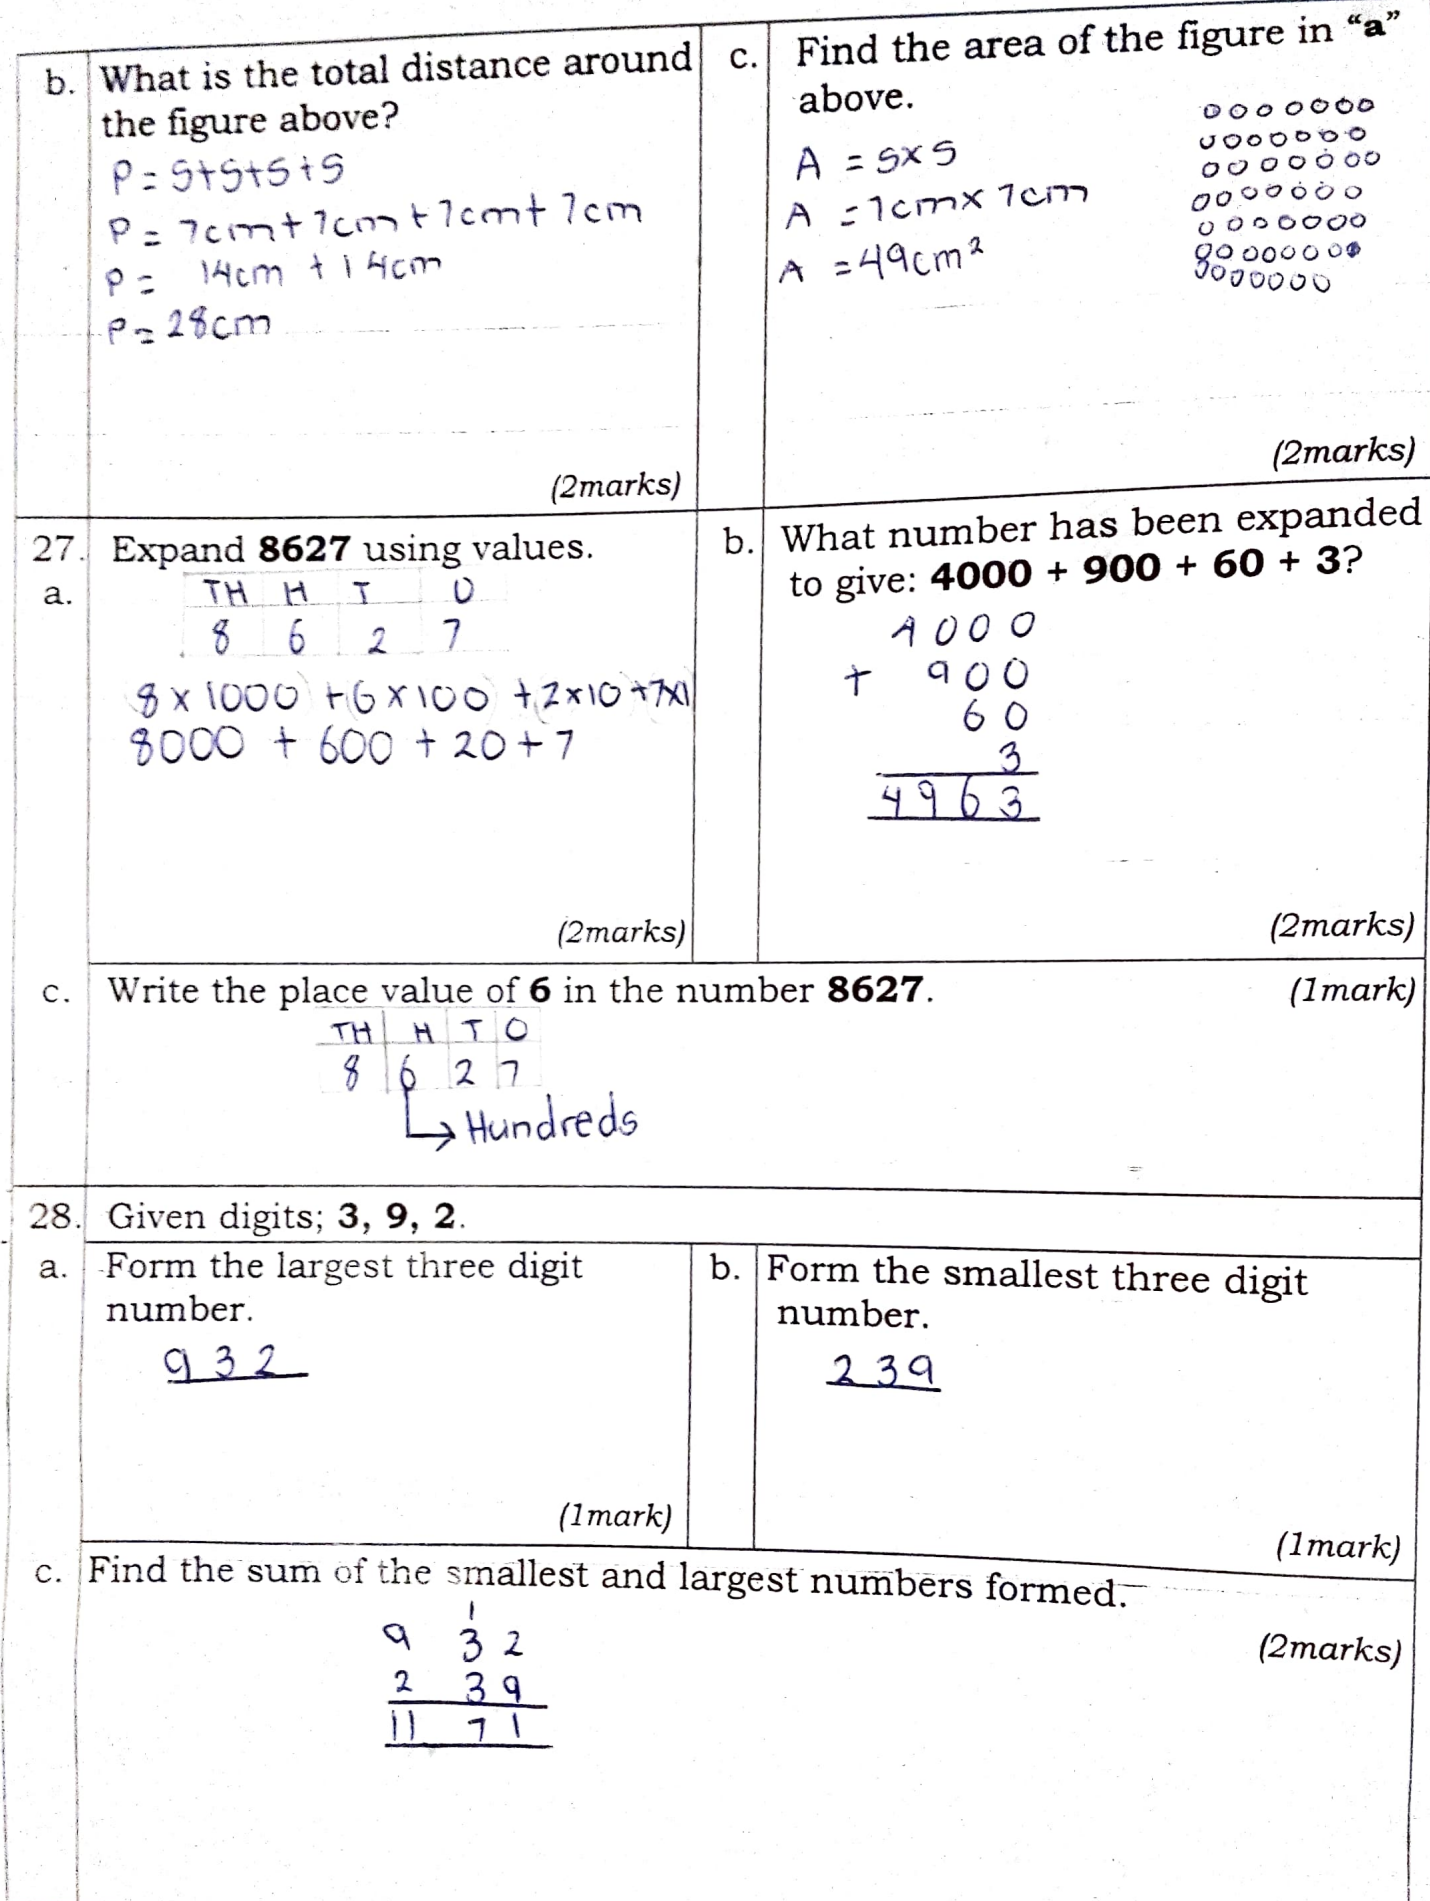 b. What is the total distance around
the figure above?
P = S+S+S+S
P = 7cm+7cm+7cm+7cm
P = 14cm + 14cm
P = 28cm
(2marks)
c. Find the area of the figure in “a”
above.
A = S×S
A = 7cm×7cm
A = 49cm²
(2marks)
27. Expand 8627 using values.
a.
TH H T O
8 6 2 7
8×1000+6×100+2×10+7×1
8000 + 600 + 20+7
(2marks)
b. What number has been expanded
to give: 4000 + 900 + 60 + 3?
4000
+ 900
60
3
4963
(2marks)
c. Write the place value of 6 in the number 8627. (1mark)
TH H T O
8 6 2 7
→Hundreds
28. Given digits; 3, 9, 2.
a. Form the largest three digit
number.
932
(1mark)
b. Form the smallest three digit
number.
239
(1mark)
c. Find the sum of the smallest and largest numbers formed.
(2marks)
1
9 3 2
2 3 9
11 7 1